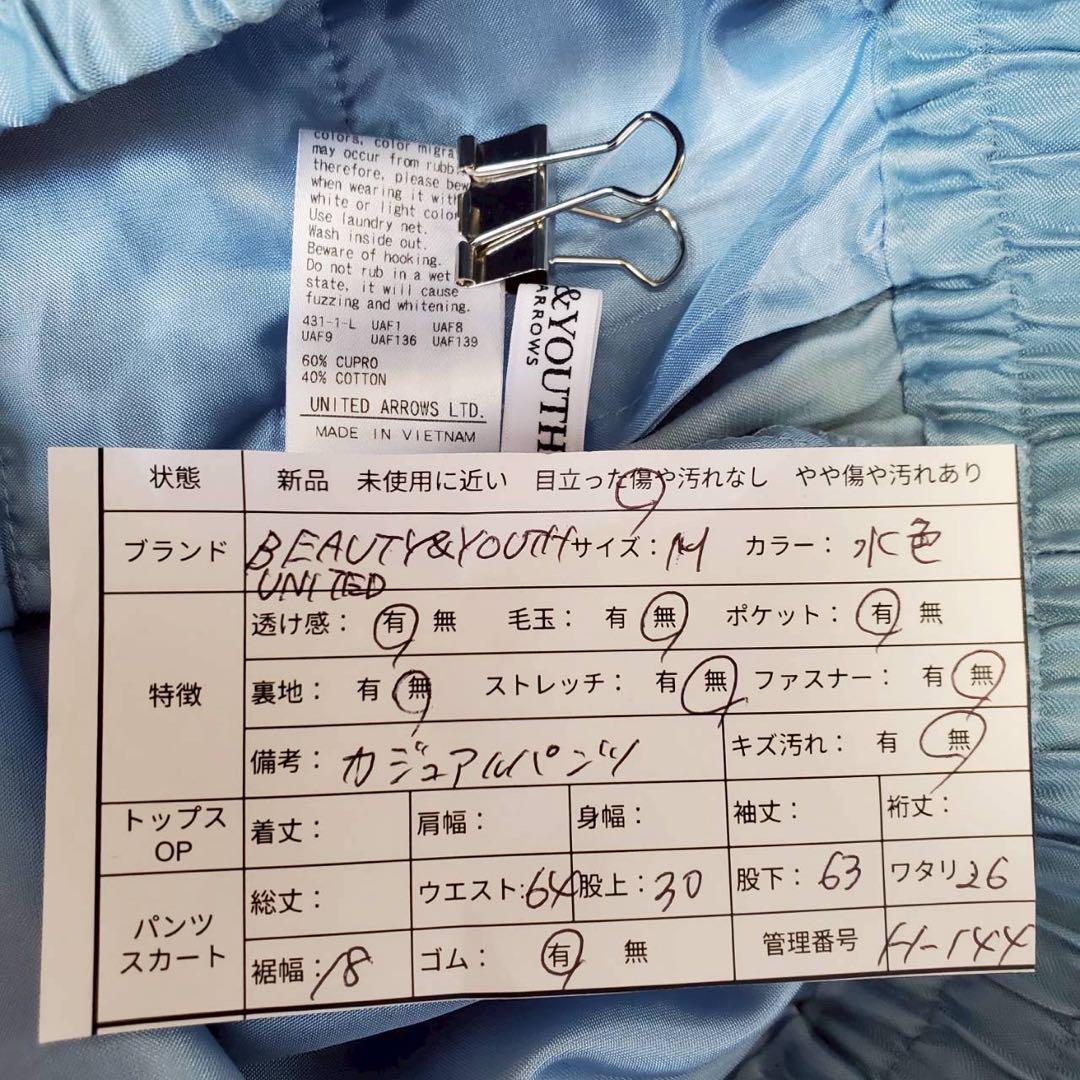 colors, color migra
may occur from rubb
therefore, please bew
when wearing it with
white or light color
Use laundry net.
Wash inside out.
Beware of hooking.
Do not rub in a wet
state, it will cause
fuzzing and whitening.
431-1-L UAF1 UAF8
UAF9 UAF136 UAF139
60% CUPRO
40% COTTON
UNITED ARROWS LTD.
MADE IN VIETNAM
&YOUTH
ARROWS
状態 新品 未使用に近い 目立った傷や汚れなし やや傷や汚れあり
ブランド BEAUTY&YOUTH サイズ: M カラー: 水色
UNITED
特徴
透け感: 有 無 毛玉: 有 無 ポケット: 有 無
裏地: 有 無 ストレッチ: 有 無 ファスナー: 有 無
備考: カジュアルパンツ キズ汚れ: 有 無
トップス
OP
着丈: 肩幅: 身幅: 袖丈: 裄丈:
パンツ
スカート
総丈: ウエスト: 64 股上: 30 股下: 63 ワタリ 26
裾幅: 18 ゴム: 有 無 管理番号 H-144